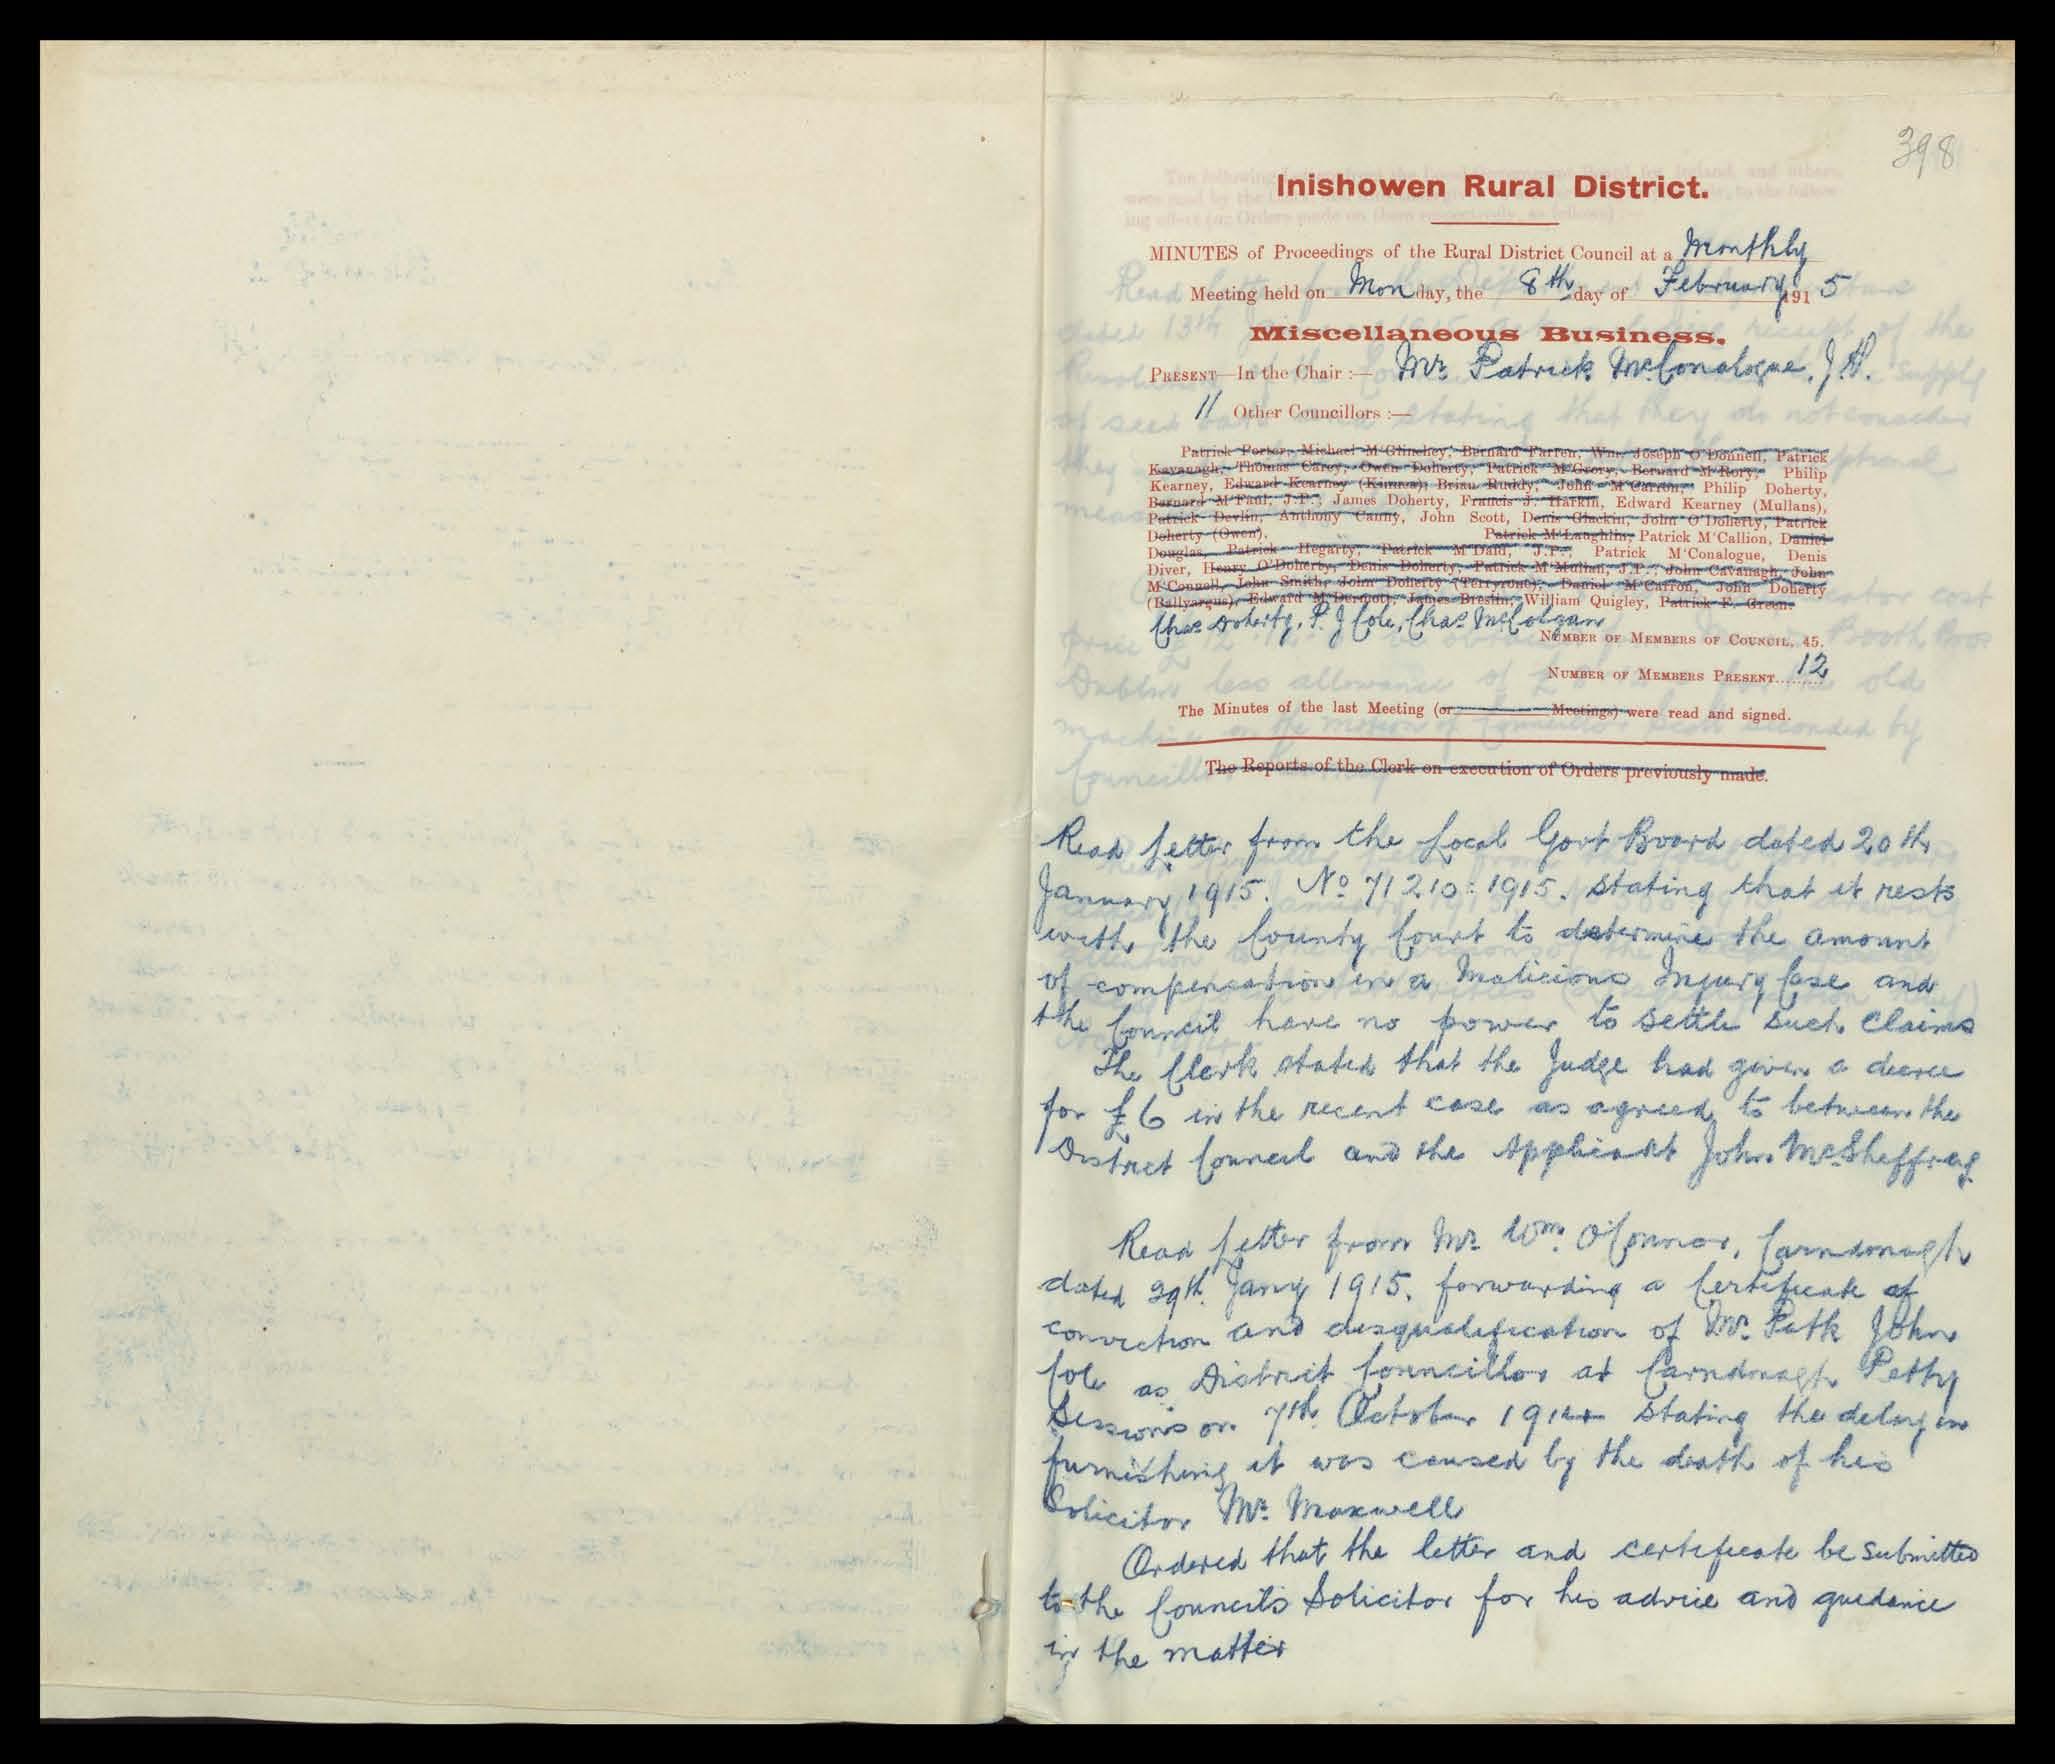 398
Inishowen Rural District.
MINUTES of Proceedings of the Rural District Council at a Monthly
Meeting held on Monday, the 8th day of February 1915
Miscellaneous Business.
PRESENT—In the Chair :— Mr. Patrick McConalogue, J.P.
11 Other Councillors :—
Patrick Porter, Michael M'Glinchey, Bernard Farren, Wm. Joseph O'Donnell, Patrick
Kavanagh, Thomas Carey, Owen Doherty, Patrick M'Grory, Bernard M'Rory, Philip
Kearney, Edward Kearney (Kinnea), Brian Ruddy, John M'Carron, Philip Doherty,
Bernard M'Faul, J.P., James Doherty, Francis J. Harkin, Edward Kearney (Mullans),
Patrick Devlin, Anthony Canny, John Scott, Denis Glackin, John O'Doherty, Patrick
Doherty (Owen), Patrick M'Laughlin, Patrick M'Callion, Daniel
Douglas, Patrick Hegarty, Patrick M'Daid, J.P., Patrick M'Conalogue, Denis
Diver, Henry O'Doherty, Denis Doherty, Patrick M'Mullan, J.P., John Cavanagh, John
M'Connell, John Smith, John Doherty (Terryrone), Daniel M'Carron, John Doherty
(Ballyargus), Edward M'Dermott, James Breslin, William Quigley, Patrick F. Green.
Chas Doherty, P. J Cole, Chas McColgan
NUMBER OF MEMBERS OF COUNCIL, 45.
NUMBER OF MEMBERS PRESENT......... 12
The Minutes of the last Meeting (or Meetings) were read and signed.
The Reports of the Clerk on execution of Orders previously made.
Read letter from the Local Govt Board dated 20th
January 1915. No 71210:1915. stating that it rests
with the County Court to determine the amount
of compensation in a Malicious Injury Case and
the Council have no power to settle such claims
The Clerk stated that the Judge had given a decree
for £6 in the recent case as agreed to between the
District Council and the Applicant John McSheffrey.
Read letter from Mr Wm. O'Connor, Carndonagh
dated 29th Jany 1915. forwarding a Certificate of
conviction and disqualification of Mr. Patk John
Cole as District Councillor at Carndonagh Petty
Sessions on 7th October 1914 stating the delay in
furnishing it was caused by the death of his
Solicitor Mr. Maxwell
Ordered that the letter and certificate be submitted
to the Council's Solicitor for his advice and guidance
in the matter